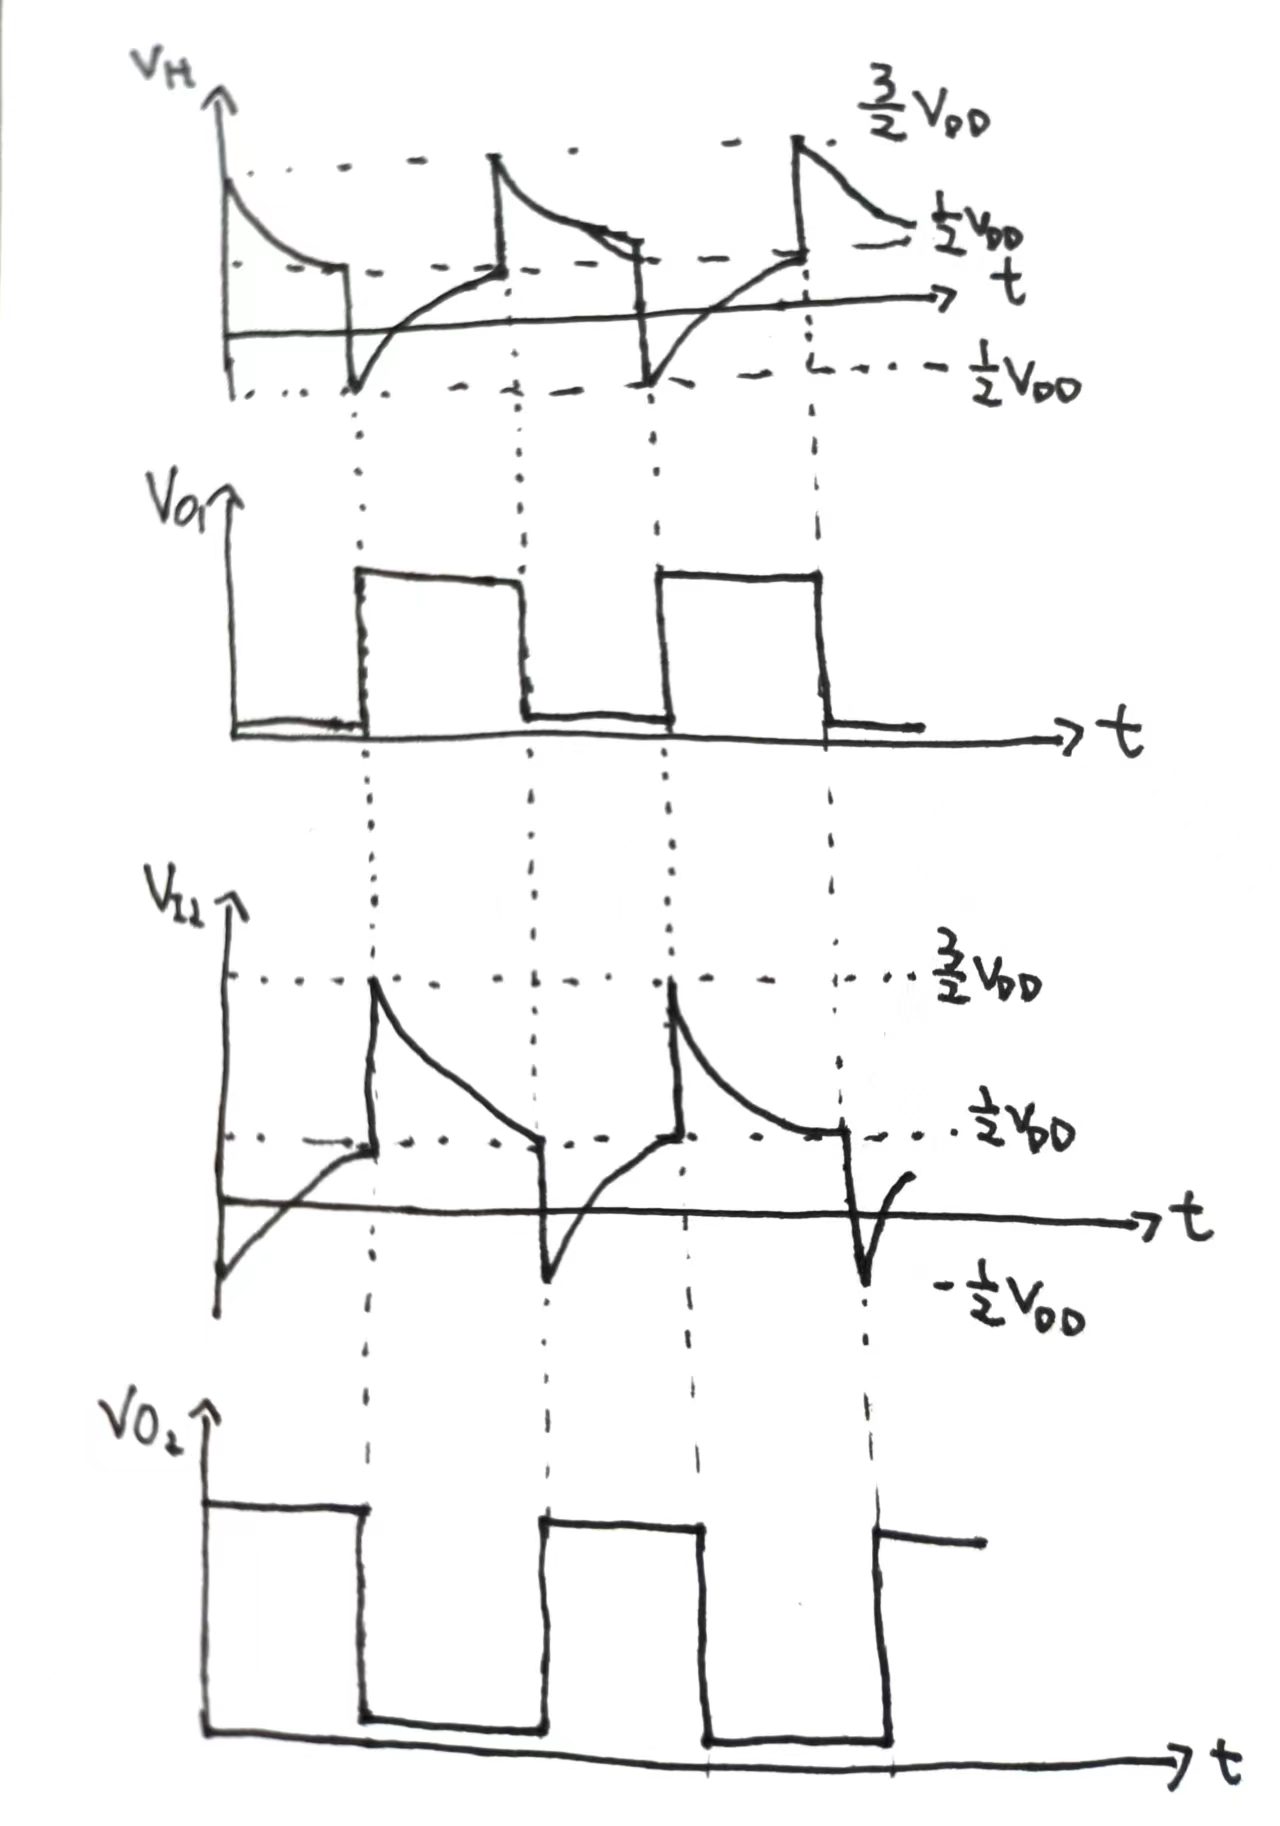 VH
3/2 VDD
1/2 VDD
t
1/2 VDD
VO1
t
VI2
3/2 VDD
1/2 VDD
t
-1/2 VDD
VO2
t